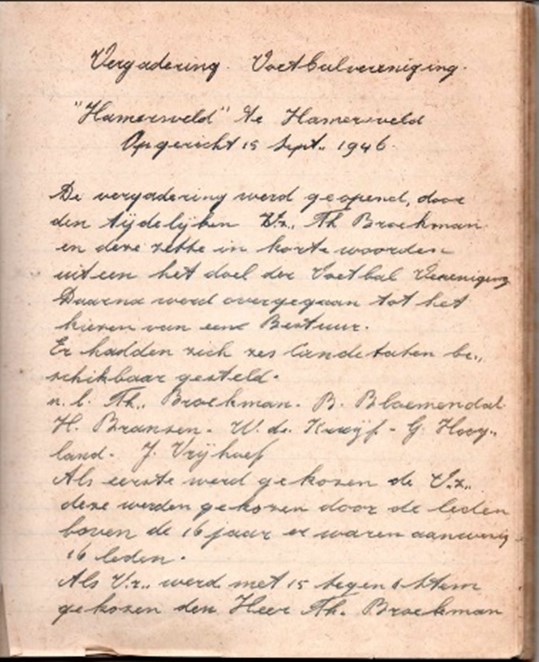 Vergadering. Voetbalvereniging.
"Hamersveld" te Hamersveld
Opgericht 15 Sept. 1946.
De vergadering werd geopend, door
den tijdelijken Vz., Th Broekman
en deze zette in korte woorden
uiteen het doel der Voetbal Vereeniging
Daarna werd overgegaan tot het
kiezen van eene Bestuur.
Er hadden zich zes Candetaten be„
schikbaar gesteld.
n.l. Th. Broekman. B. Bloemendal
H. Bransen. W. de Kruijf. G. Hooy„
land. J. Vrijhoef
Als eerste werd gekozen de V.z.,
deze werden gekozen door de leden
boven de 16 jaar er waren aanwezig
16 leden.
Als V.z., werd met 15 tegen 1 stem
gekozen den Heer Th. Broekman